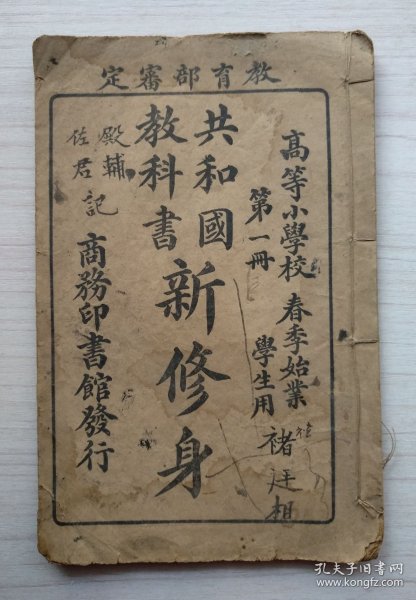 教育部審定
高等小學校 春季始業
第一冊 學生用
共和國
教科書
新修身
商務印書館發行
殿輔
佐君
記
褚廷相
孔夫子旧书网
www.kongfz.com